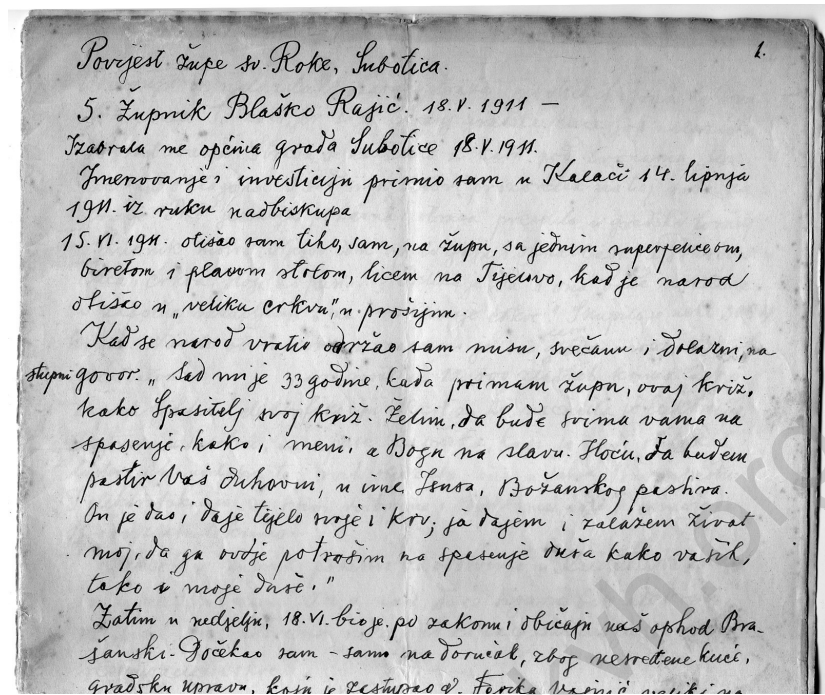 1.
Povijest župe sv. Roke, Subotica.
5. Župnik Blaško Rajić. 18.V.1911 –
Izabrala me općina grada Subotice 18.V.1911.
Imenovanje i investiciju primio sam u Kalači 14. lipnja
1911. iz ruku nadbiskupa
15.VI.1911. otišao sam tiho, sam, na župu, sa jednim superpeliceom,
biretom i plavom štolom, licem na Tijelovo, kad je narod
otišao u „veliku crkvu", u prošijun.
Kad se narod vratio održao sam misu, svečanu i dolazni, na
stupni govor. „Sad mi je 33 godine, kada primam župu, ovaj križ,
kako Spasitelj svoj križ. Želim, da bude svima vama na
spasenje, kako i meni, a Bogu na slavu. Hoću, da budem
pastir Vaš duhovni, u ime Isusa, Božanskog pastira.
On je dao i daje tijelo svoje i krv; ja dajem i zalažem život
moj, da ga ovdje potrošim na spasenje duša kako vaših,
tako i moje duše."
Zatim u nedjelju, 18.VI. bio je po zakonu i običaju naš ophod Bra-
šanski. Dočekao sam – samo na doručak, zbog nesređene kuće,
gradsku upravu, koju je zastupao